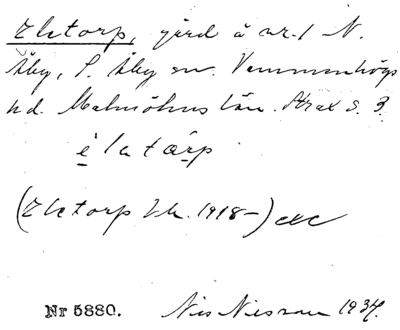 Eletorp, gård å nr. 1 N.
Åby, S. Åby sn. Vemmenhögs
hd. Malmöhus län. Strax S. 3.
è̱ la tɑ̱rp
(Eletorp Jb. 1918-) etc
Nr 5880. Nils Nilsson 1934.